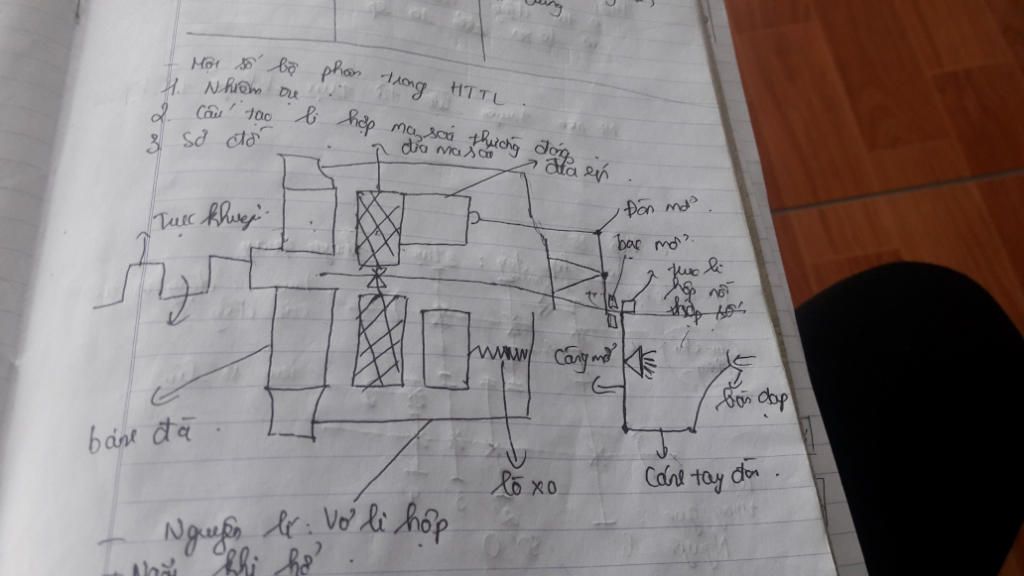 - Một số bộ phận trong HTTL.
1. Nhiệm vụ.
2. Cấu tạo li hợp ma sát thường đóng
3 Sơ đồ
đĩa ma sát
đĩa ép.
Trục khuỷu.
Đòn mở.
bạc mở.
trục li
hợp nối
hộp số
Càng mở
Bàn đạp
bánh đà.
lò xo
Cánh tay đòn.
- Nguyên lí: Vỏ li hợp